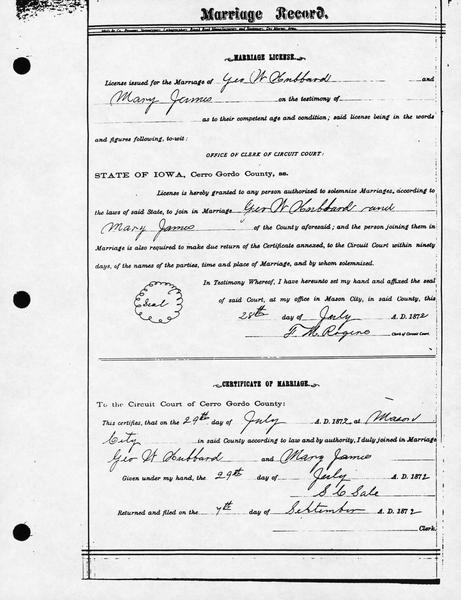 Marriage Record.
MARRIAGE LICENSE.
License issued for the Marriage of Geo W Hubbard and
Mary James on the testimony of
as to their competent age and condition; said license being in the words
and figures following, to-wit:
OFFICE OF CLERK OF CIRCUIT COURT:
STATE OF IOWA, Cerro Gordo County, ss.
License is hereby granted to any person authorized to solemnize Marriages, according to
the laws of said State, to join in Marriage Geo W Hubbard and
Mary James of the County aforesaid; and the person joining them in
Marriage is also required to make due return of the Certificate annexed, to the Circuit Court within ninety
days, of the names of the parties, time and place of Marriage, and by whom solemnized.
In Testimony Whereof, I have hereunto set my hand and affixed the seal
Seal
of said Court, at my office in Mason City, in said County, this
28th day of July A. D. 1872
F. M. Rogers Clerk of Circuit Court.
CERTIFICATE OF MARRIAGE.
To the Circuit Court of Cerro Gordo County:
This certifies, that on the 29th day of July A. D. 1872 at Mason
City in said County according to law and by authority, I duly joined in Marriage
Geo W Hubbard and Mary James
Given under my hand, the 29th day of July A. D. 1872
S C Sale
Returned and filed on the 7th day of September A. D. 1872
Clerk.